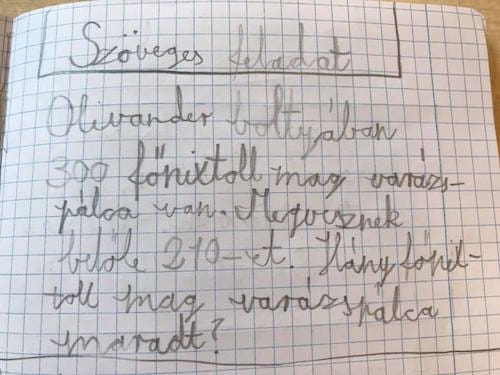 Szöveges feladat
Olivander boltyában
300 főnixtoll mag varázs-
pálca van. Megvesznek
belőle 210-et. Hány főnix-
toll mag varázspálca
maradt?